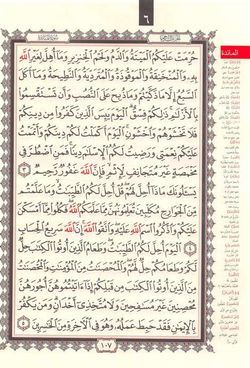 ٦
المائدة
حُرِّمَتْ عَلَيْكُمُ الْمَيْتَةُ وَالدَّمُ وَلَحْمُ الْخِنزِيرِ وَمَا أُهِلَّ لِغَيْرِ اللَّهِ
بِهِ وَالْمُنْخَنِقَةُ وَالْمَوْقُوذَةُ وَالْمُتَرَدِّيَةُ وَالنَّطِيحَةُ وَمَا أَكَلَ
السَّبُعُ إِلَّا مَا ذَكَّيْتُمْ وَمَا ذُبِحَ عَلَى النُّصُبِ وَأَن تَسْتَقْسِمُوا
بِالْأَزْلَٰمِ ذَٰلِكُمْ فِسْقٌ الْيَوْمَ يَئِسَ الَّذِينَ كَفَرُوا مِن دِينِكُمْ
فَلَا تَخْشَوْهُمْ وَاخْشَوْنِ الْيَوْمَ أَكْمَلْتُ لَكُمْ دِينَكُمْ وَأَتْمَمْتُ
عَلَيْكُمْ نِعْمَتِي وَرَضِيتُ لَكُمُ الْإِسْلَٰمَ دِينًا فَمَنِ اضْطُرَّ فِي
مَخْمَصَةٍ غَيْرَ مُتَجَانِفٍ لِّإِثْمٍ فَإِنَّ اللَّهَ غَفُورٌ رَّحِيمٌ ٣
يَسْـَٔلُونَكَ مَاذَا أُحِلَّ لَهُمْ قُلْ أُحِلَّ لَكُمُ الطَّيِّبَٰتُ وَمَا عَلَّمْتُم
مِّنَ الْجَوَارِحِ مُكَلِّبِينَ تُعَلِّمُونَهُنَّ مِمَّا عَلَّمَكُمُ اللَّهُ فَكُلُوا مِمَّا أَمْسَكْنَ
عَلَيْكُمْ وَاذْكُرُوا اسْمَ اللَّهِ عَلَيْهِ وَاتَّقُوا اللَّهَ إِنَّ اللَّهَ سَرِيعُ الْحِسَابِ
٤ الْيَوْمَ أُحِلَّ لَكُمُ الطَّيِّبَٰتُ وَطَعَامُ الَّذِينَ أُوتُوا الْكِتَٰبَ حِلٌّ
لَّكُمْ وَطَعَامُكُمْ حِلٌّ لَّهُمْ وَالْمُحْصَنَٰتُ مِنَ الْمُؤْمِنَٰتِ وَالْمُحْصَنَٰتُ
مِنَ الَّذِينَ أُوتُوا الْكِتَٰبَ مِن قَبْلِكُمْ إِذَا ءَاتَيْتُمُوهُنَّ أُجُورَهُنَّ
مُحْصِنِينَ غَيْرَ مُسَٰفِحِينَ وَلَا مُتَّخِذِي أَخْدَانٍ وَمَن يَكْفُرْ
بِالْإِيمَٰنِ فَقَدْ حَبِطَ عَمَلُهُ وَهُوَ فِي الْءَاخِرَةِ مِنَ الْخَٰسِرِينَ ٥
١٠٧